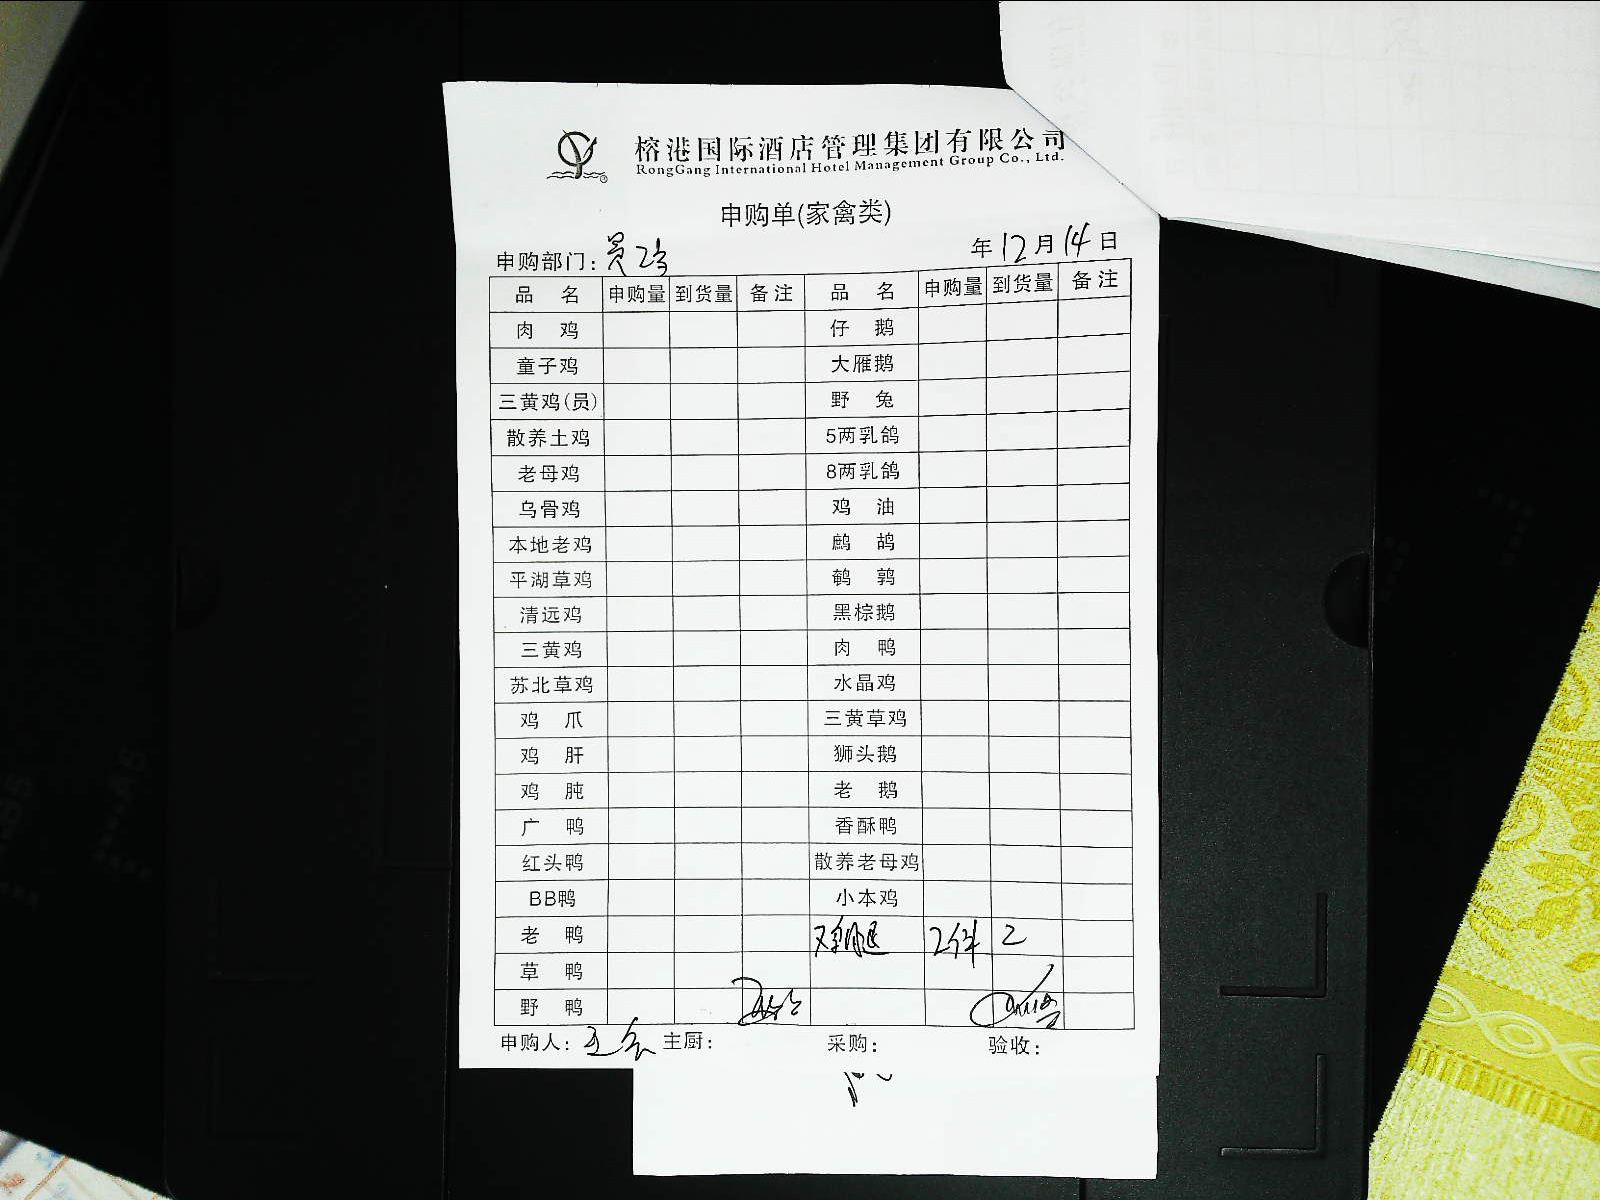 榕港国际酒店管理集团有限公司
RongGang International Hotel Management Group Co., Ltd.
申购单(家禽类)
申购部门: 年12月14日
品 名 申购量 到货量 备注 品 名 申购量 到货量 备注
肉 鸡 仔 鹅
童子鸡 大雁鹅
三黄鸡(员) 野 兔
散养土鸡 5两乳鸽
老母鸡 8两乳鸽
乌骨鸡 鸡 油
本地老鸡 鹧 鸪
平湖草鸡 鹌 鹑
清远鸡 黑棕鹅
三黄鸡 肉 鸭
苏北草鸡 水晶鸡
鸡 爪 三黄草鸡
鸡 肝 狮头鹅
鸡 肫 老 鹅
广 鸭 香酥鸭
红头鸭 散养老母鸡
BB鸭 小本鸡
老 鸭 鸡腿 2件 2
草 鸭
野 鸭
申购人: 主厨: 采购: 验收: